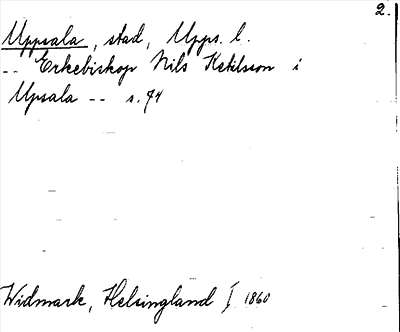 2.
Uppsala, stad, Upps. l.
-- Erkebiskop Nils Ketilsson i
Upsala -- s. 74
Widmark, Helsingland I 1860